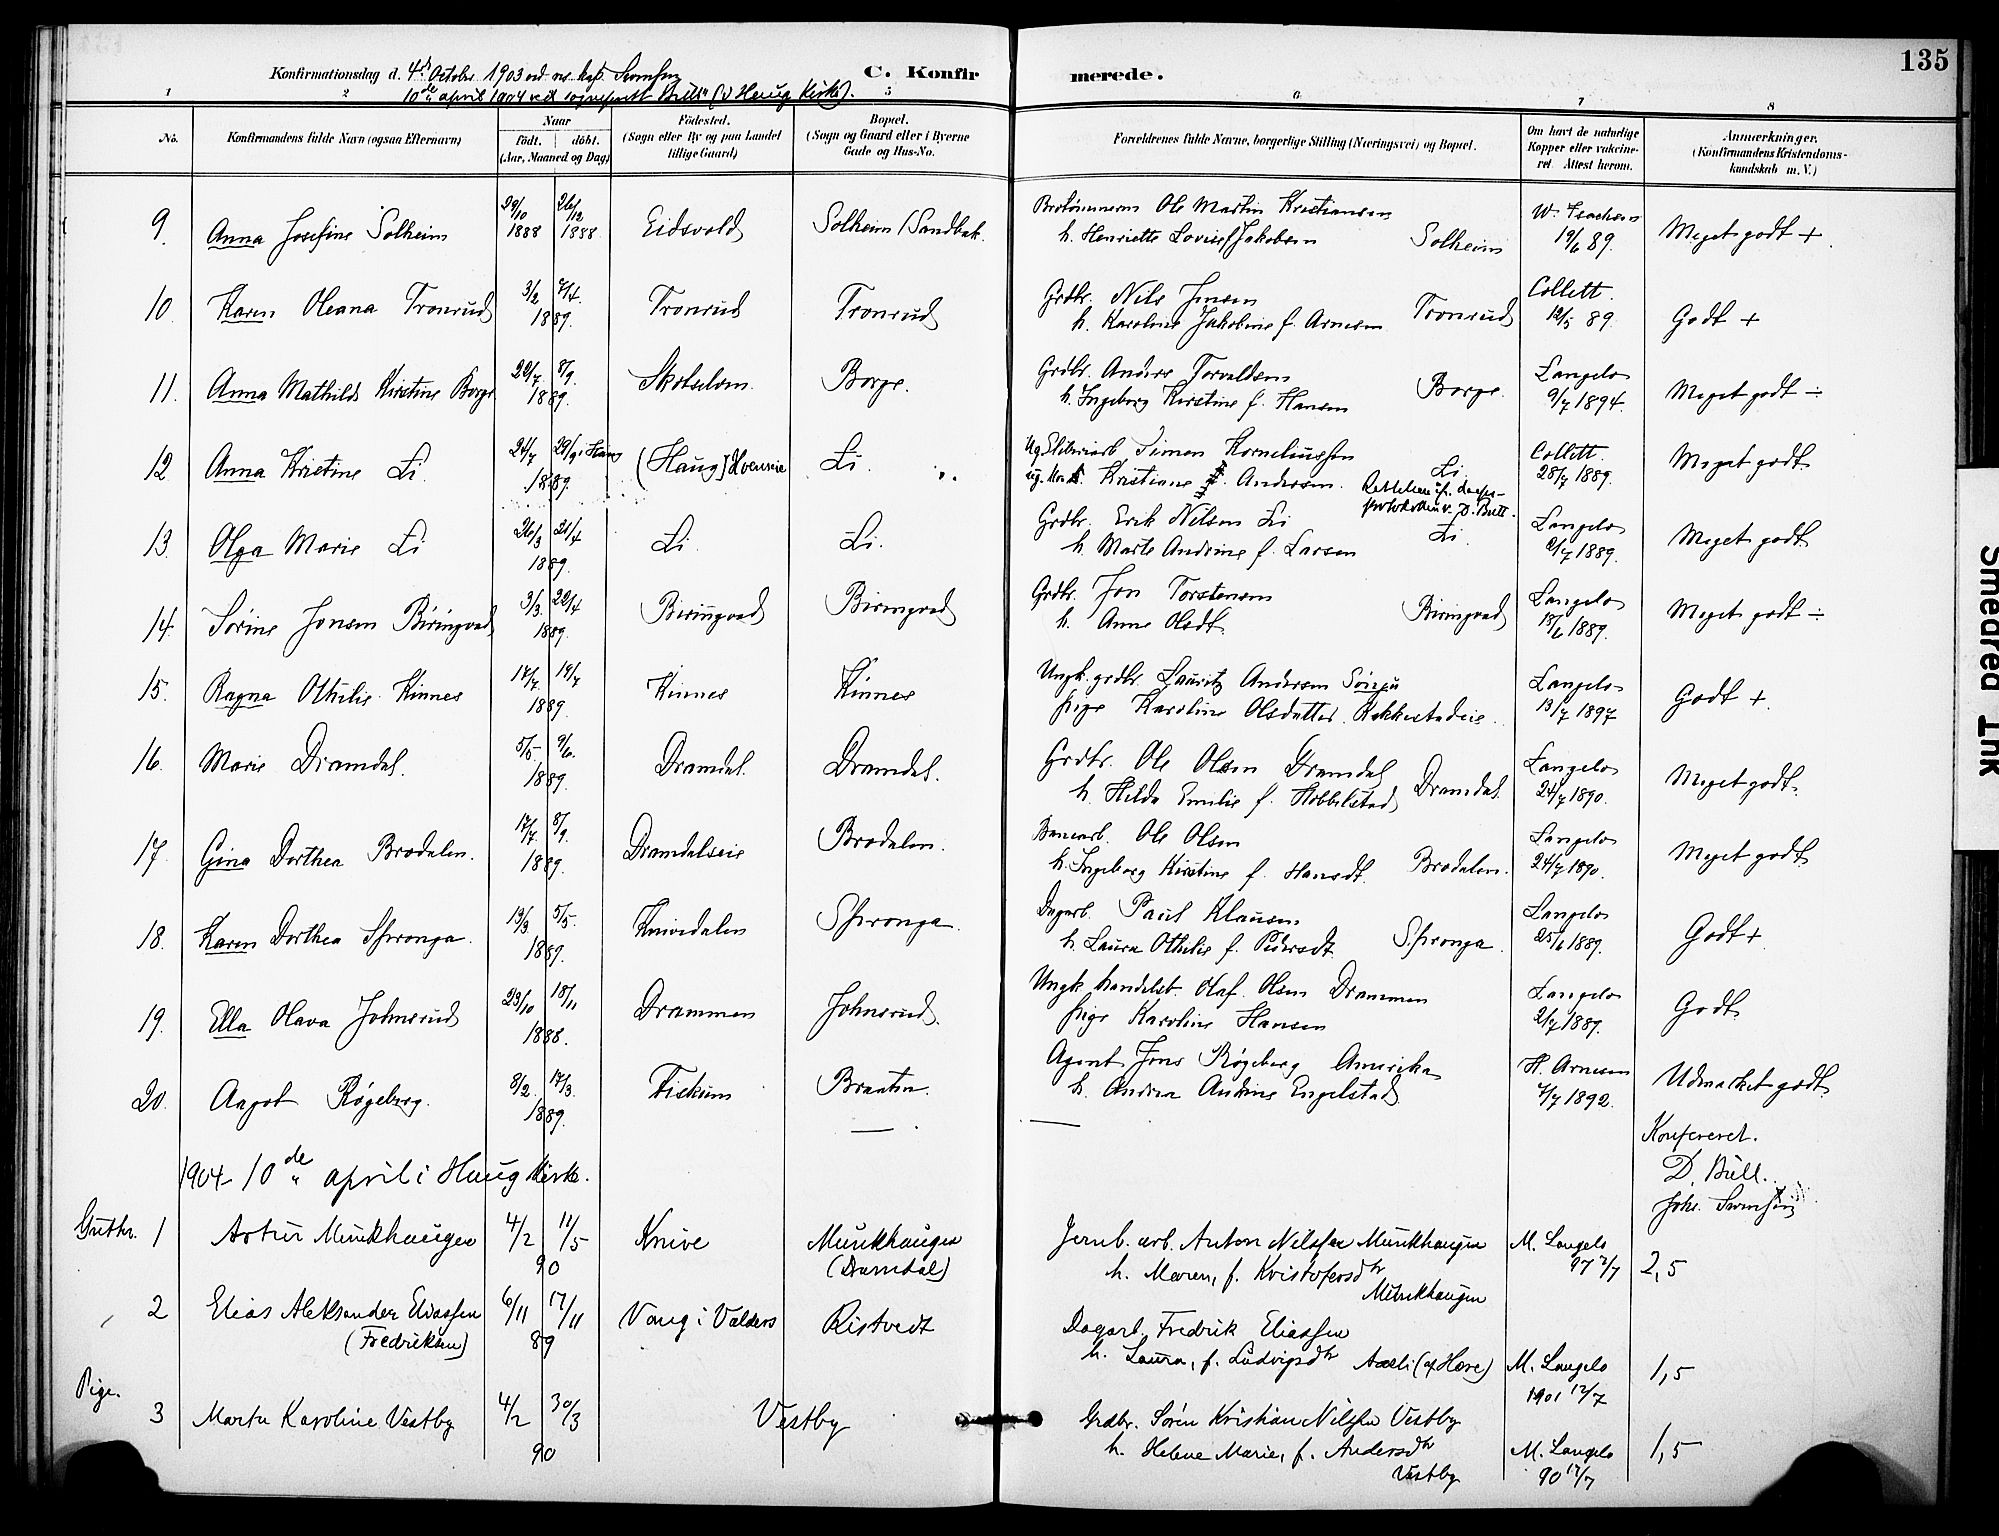 135
Konfirmationsdag d. 4de October 1903 ved res. kap. Svensen
C. Konfirmerede.
10de april 1904 ved sogneprest Bull (i Haug Kirke).
1 2 5 6 7 8
No.
Konfirmandens fulde Navn (ogsaa Efternavn)
Naar
født. døbt.
(Aar, Maaned og Dag)
Fødested.
(Sogn eller By og paa Landet
tillige Gaard)
Bopæl.
(Sogn og Gaard eller i Byerne
Gade og Hus-No.
Forældrenes fulde Navne, borgerlige Stilling (Næringsvei) og Bopæl.
Om havt de naturlige
Kopper eller vakcine-
ret Attest herom.
Anmærkninger.
(Konfirmandens Kristendoms-
kundskab m. V.)
9. Anna Josefine Solheim 29/10 1888 26/12 1888 Eidsvold Solheim/Sandbak. Ole Martin Kristiansen Solheim 19/6 89. Meget godt +
h. Henriette Lovise f. Jakobsen
10. Karen Oleana Tronrud 3/2 7/4. 1889. Tronrud Tronrud Grdbr. Nils Jensen Tronrud Collett. 12/5 89. Godt +
h. Karoline Jakobine f. Arnesen
11. Anna Mathilde Kirstine Borge 22/7 8/9. 1889. Skotselven. Borge. Grdbr. Anders Torvaldsen Borge. Langelo 9/7 1894. Meget godt ÷
h. Ingeborg Kirstine f. Hansen
12. Anna Kristine Li 24/7 29/9 i Haug 1889. (Haug) Hvenseie Li. Simen Korneliussen Li. Collett. 28/7 1889. Meget godt
Kristiane Andersen. Rettelsen v. D. Bull.
13. Olga Marie Li 26/3 21/4 1889. Li. Li. Grdbr. Erik Nilsen Li Li. Langelo 2/7 1889. Meget godt
h. Marte Andrine f. Larsen
14. Sørine Jonsen Biringvad 3/3. 22/4 1889. Biringvad Biringvad Grdbr. Jon Torstensen Biringvad Langelo 18/6 1889. Meget godt ÷
h. Anne Olsdt.
15. Ragna Othilie Kinnes 17/7. 19/7 1889. Kinnes Kinnes Ungk. grdbr. Lauritz Andersen Sønju Langelo 13/7 1897 Godt +
pige Karoline Olsdatter Rekkestadeie.
16. Marie Dramdal. 5/5- 9/6. 1889. Dramdal. Dramdal. Grdbr. Ole Olsen Dramdal Dramdal. Langelo 24/7 1890. Meget godt.
h. Hilda Emilie f. Hobbelstad
17. Gina Dorthea Brodalen. 17/7. 8/9. 1889. Dramdalseie Brodalen. Banearb. Ole Olsen Brodalen. Langelo 24/7 1890. Meget godt
h. Ingeborg Kirstine f. Hansdt.
18. Karen Dorthea Spronga. 13/3. 5/5. 1889. Knivedalen Spronga. Dagarb. Paul Klausen Spronga. Langelo 25/6 1889. Godt +
h. Laura Othilie f. Pedersdt.
19. Ella Olava Johnsrud 23/10 18/11 1888. Drammen Johnsrud. Ungk. handelsb. Olaf Olsen Drammen Langelo 2/7 1889. Godt.
pige Karoline Hansen
20. Aagot Røgeberg. 8/2. 17/3. 1889. Fiskum Braaten. Agent Jens Røgeberg Amerika H. Arnesen 7/7 1892. Udmerket godt.
h. Andrea Andrine Engelstad
Konfereret.
D. Bull.
Johs. Svensen
1904 10de april i Haug Kirke.
Gutter. 1 Artur Munkhaugen 4/2 11/5 90 Knive Munkhaugen (Dramdal) Jernb. arb. Anton Nilssen Munkhaugen M. Langelo 97 2/7 2,5
h. Maren, f. Kristofersdtr
Munkhaugen
2 Elias Aleksander Eliassen (Fredriksen) 6/11 17/11 89 Vang i Valders Ristvedt Dagarb. Fredrik Eliassen
h. Laura, f. Ludvigsdtr M. Langelo 1901 12/7 1,5
Pige. 3 Marta Karoline Vestby 4/2 30/3 90 Vestby Grdbr. Søren Kristian Nilssen Vestby
h. Helene Marie, f. Andersdtr Vestby M. Langelo 90 12/7 1,5
Smeared Ink